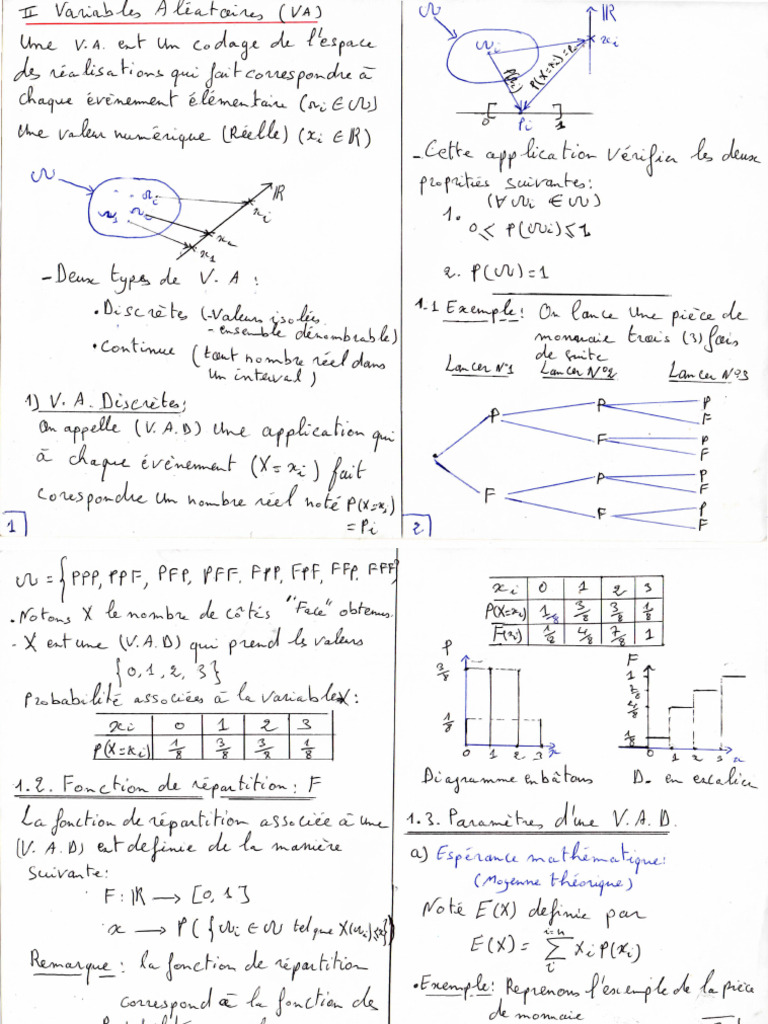 II Variables Aléatoires (VA)
Une V.A. est un codage de l'espace
des réalisations qui fait correspondre à
chaque évènement élémentaire (ωi ∈ Ω)
une valeur numérique (Réelle) (xi ∈ ℝ)
Ω
ωi
ℝ
xi
x2
x1
- Deux types de V.A :
• Discrètes (- Valeurs isolés
- ensemble dénombrable)
• Continue (tout nombre réel dans
un interval)
1) V.A. Discrètes;
On appelle (V.A.D) une application qui
à chaque évènement (X=xi) fait
corespondre un nombre réel noté P(X=xi)
= Pi
1
Ω
ℝ
ωi
xi
P(ωi)
P(X=xi)=Pi
0 Pi 1
- Cette application vérifier les deux
propriétés suivantes:
(∀ ωi ∈ Ω)
1.
0 ≤ P(ωi) ≤ 1
2. P(Ω) = 1
1.1 Exemple: On lance une pièce de
monnaie trois (3) fois
de suite
Lancer N°1 Lancer N°2 Lancer N°3
P P P
F
F P
F
F P P
F
F P
F
2
Ω = {PPP, PPF, PFP, PFF, FPP, FPF, FFP, FFF}
. Notons X le nombre de côtés "Face" obtenus.
- X est une (V.A.D) qui prend les valeurs
{0, 1, 2, 3}
Probabilité associées à la variable X:
xi 0 1 2 3
P(X=xi) 1/8 3/8 3/8 1/8
1.2. Fonction de répartition: F
La fonction de répartition associée à une
(V.A.D) est definie de la manière
suivante:
F: ℝ → [0, 1]
x → P({ωi ∈ Ω tel que X(ωi) ≤ x})
Remarque: la fonction de répartition
correspond à la fonction des
xi 0 1 2 3
P(X=xi) 1/8 3/8 3/8 1/8
F(xi) 1/8 4/8 7/8 1
P
3/8
1/8
0 1 2 3 x
F
1
7/8
4/8
1/8
0 1 2 3 x
Diagramme en bâtons D. en escalier
1.3. Paramètres d'une V.A.D.
a) Espérance mathématique:
(Moyenne théorique)
Noté E(X) definie par
i=n
E(X) = Σ xi P(xi)
i
• Exemple: Reprenons l'exemple de la pièce
de monnaie